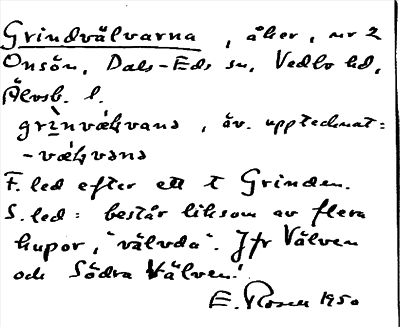 Grindvälvarna, åker, nr 2
Onsön, Dals-Eds sn, Vedbo hd,
Älvsb. l.
grìnvæɫvana, äv. upptecknat:
-væɫvana
F. led efter ett t Grinden.
S. led: består liksom av flera
kupor, "välvda". Jfr Välven
och Södra Välven!
E. Rosell 1950